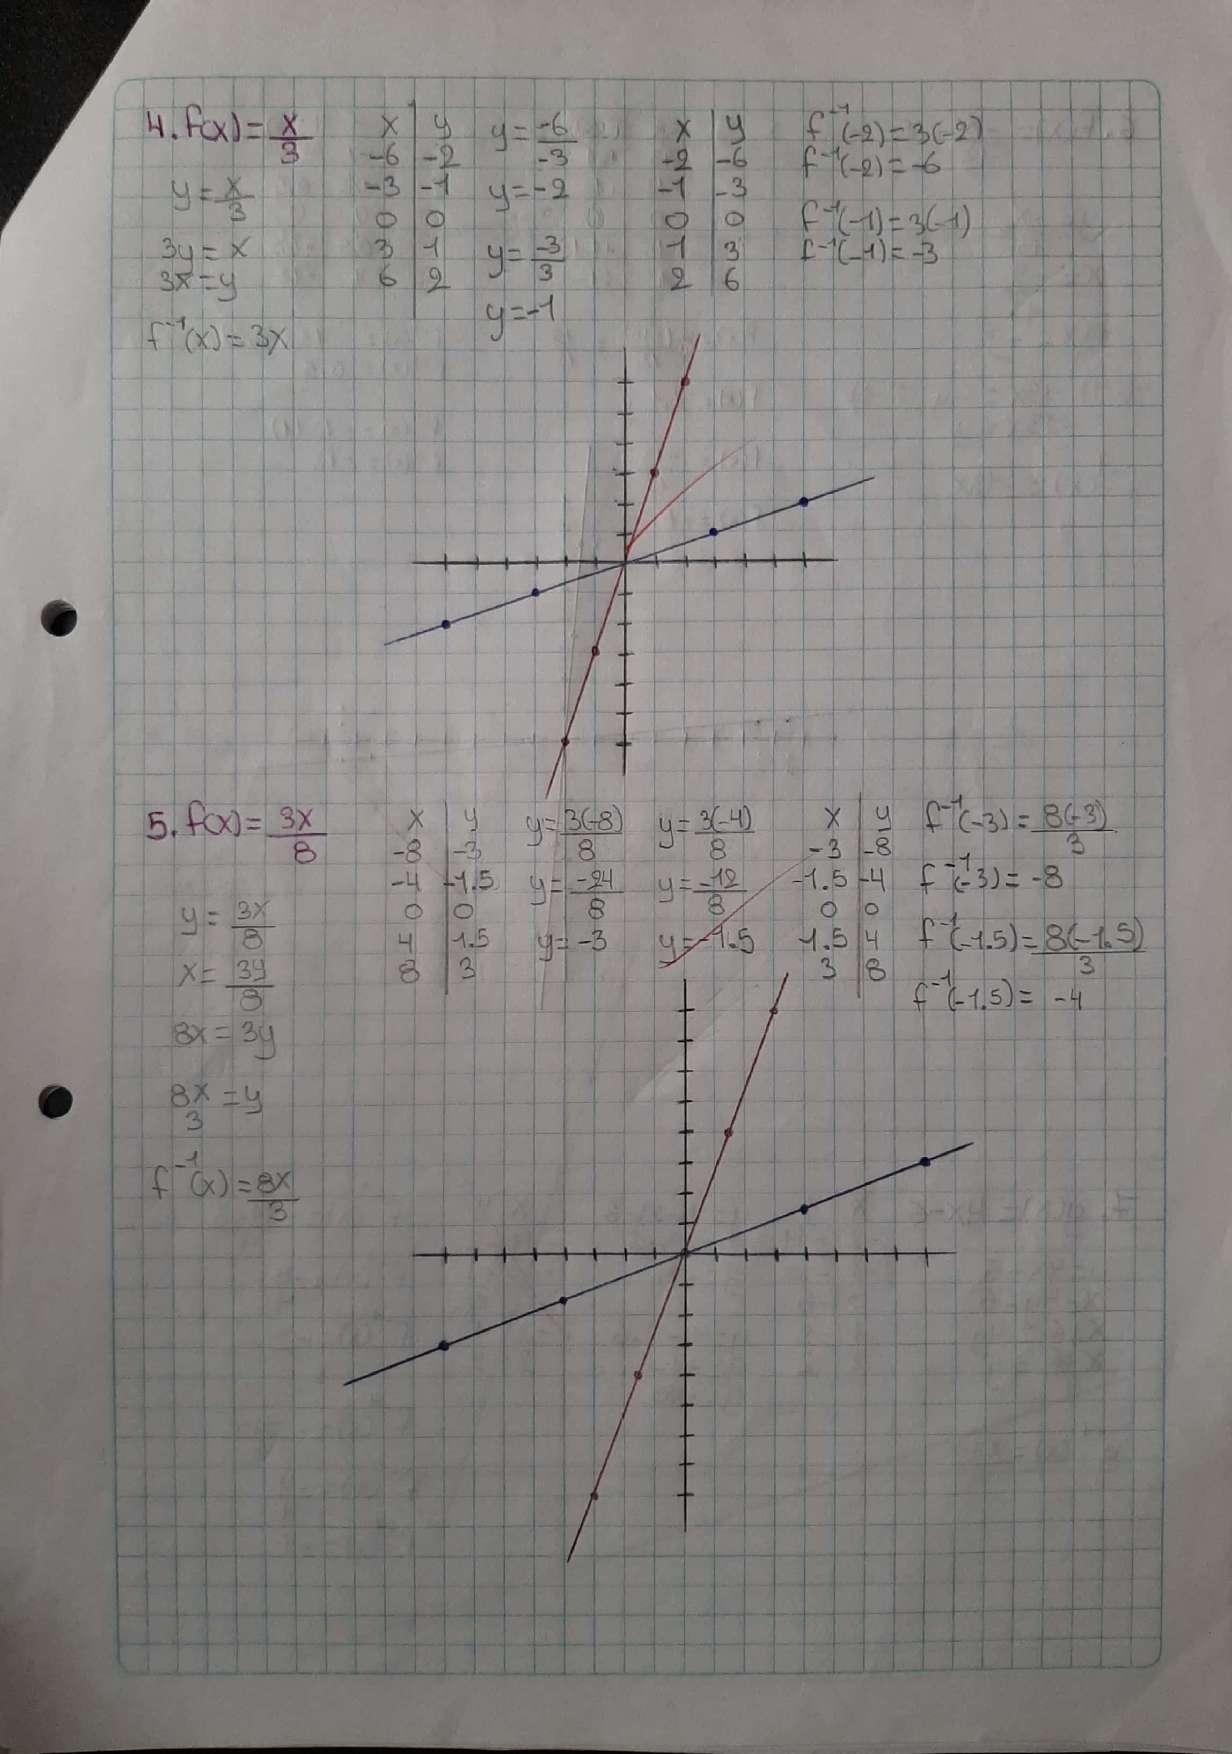 4. f(x) = x/3
y = x/3
3y = x
3x = y
f⁻¹(x) = 3x
x | y
-6 | -2
-3 | -1
0 | 0
3 | 1
6 | 2
y = -6/-3
y = -2
y = -3/3
y = -1
x | y
-2 | -6
-1 | -3
0 | 0
1 | 3
2 | 6
f⁻¹(-2) = 3(-2)
f⁻¹(-2) = -6
f⁻¹(-1) = 3(-1)
f⁻¹(-1) = -3
5. f(x) = 3x/8
y = 3x/8
x = 3y/8
8x = 3y
8x/3 = y
f⁻¹(x) = 8x/3
x | y
-8 | -3
-4 | -1.5
0 | 0
4 | 1.5
8 | 3
y = 3(-8)/8
y = -24/8
y = -3
y = 3(-4)/8
y = -12/8
y = -1.5
x | y
-3 | -8
-1.5 | -4
0 | 0
1.5 | 4
3 | 8
f⁻¹(-3) = 8(-3)/3
f⁻¹(-3) = -8
f⁻¹(-1.5) = 8(-1.5)/3
f⁻¹(-1.5) = -4